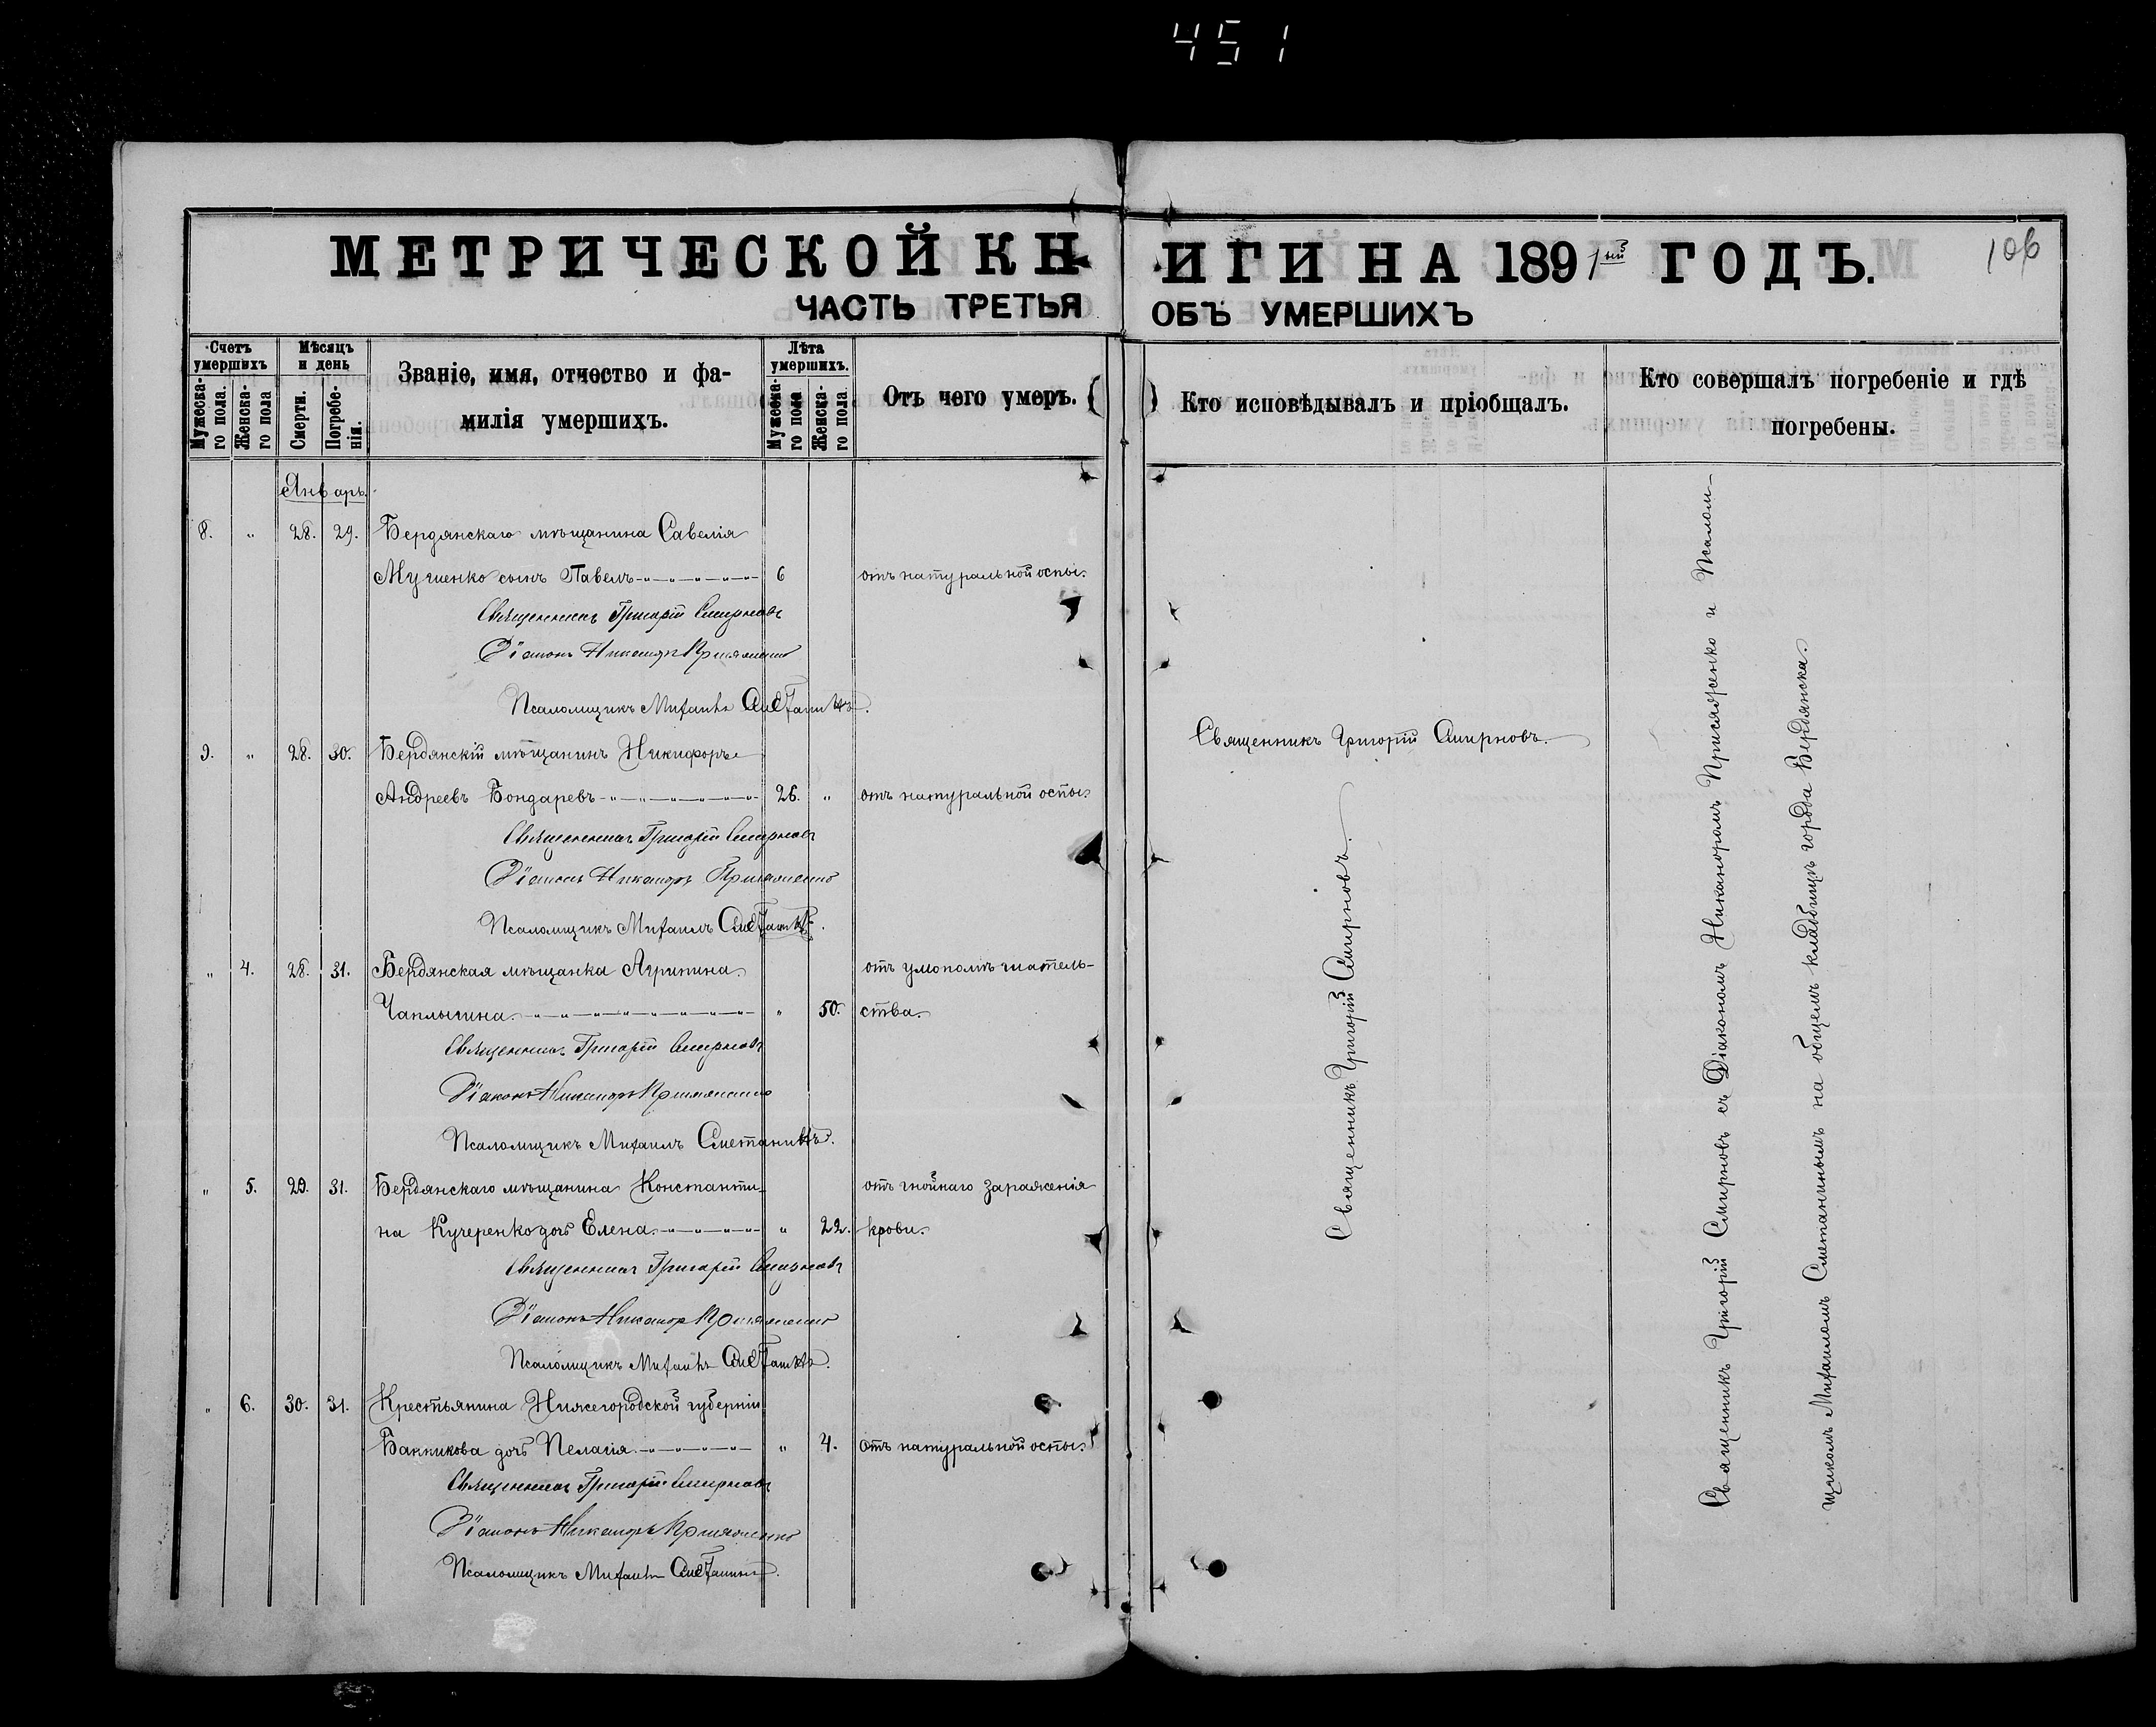 451
МЕТРИЧЕСКОЙ КНИГИ НА 1891ый ГОДЪ.
106
ЧАСТЬ ТРЕТЬЯ ОБЪ УМЕРШИХЪ
Счетъ умершихъ
Мужеска-го пола.
Женска-го пола
Мѣсяцъ и день
Смерти.
Погребе-нія.
Званіе, имя, отчество и фа-
милія умершихъ.
Лѣта умершихъ.
Мужеска-го пола
Женска-го пола
Отъ чего умеръ.
Кто исповѣдывалъ и пріобщалъ.
Кто совершалъ погребеніе и гдѣ
погребены.
Январь.
8. " 28. 29. Бердянскаго мѣщанина Савелія
сынъ Павелъ 6 отъ натуральной оспы.
Священникъ Григорій Смирновъ
Діаконъ Никаноръ Присяженко
Псаломщикъ Михаилъ Сметанинъ.
9. " 28. 30. Бердянскій мѣщанинъ Никифоръ
Андреевъ Бондаревъ 26. " отъ натуральной оспы.
Священникъ Григорій Смирновъ
Діаконъ Никаноръ Присяженко
Псаломщикъ Михаилъ Сметанинъ.
" 4. 28. 31. Бердянская мѣщанка Агрипина
Чаплыгина " 50. отъ умопомѣшатель-
ства.
Священникъ Григорій Смирновъ
Діаконъ Никаноръ Присяженко
Псаломщикъ Михаилъ Сметанинъ.
" 5. 29. 31. Бердянскаго мѣщанина Константи-
на Кучеренко дочь Елена " 22. отъ гнойнаго зараженія
крови.
Священникъ Григорій Смирновъ
Діаконъ Никаноръ Присяженко
Псаломщикъ Михаилъ Сметанинъ.
" 6. 30. 31. Крестьянина Нижегородской губерніи
Банникова дочь Пелагія " 4. отъ натуральной оспы.
Священникъ Григорій Смирновъ
Діаконъ Никаноръ Присяженко
Псаломщикъ Михаилъ Сметанинъ.
Священникъ Григорій Смирновъ.
Священникъ Григорій Смирновъ.
Священникъ Григорій Смирновъ съ Діакономъ Никаноромъ Присяженко и Псалом-
щикомъ Михаиломъ Сметанинымъ на общемъ кладбищѣ города Бердянска.